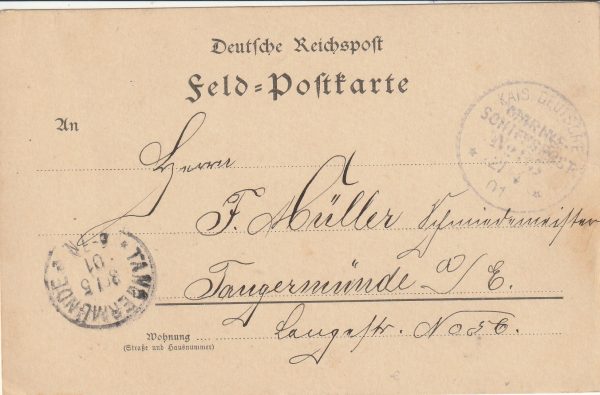 Deutsche Reichspost
Feld=Postkarte
An
Herrn
F. Müller Schmiedemeister
Tangermünde a/E.
Langestr. No 56.
Wohnung
(Straße und Hausnummer)
KAIS. DEUTSCHE
MARINE-
SCHIFFSPOST
No.
01
* TANGERMÜNDE *
6-7 N
01